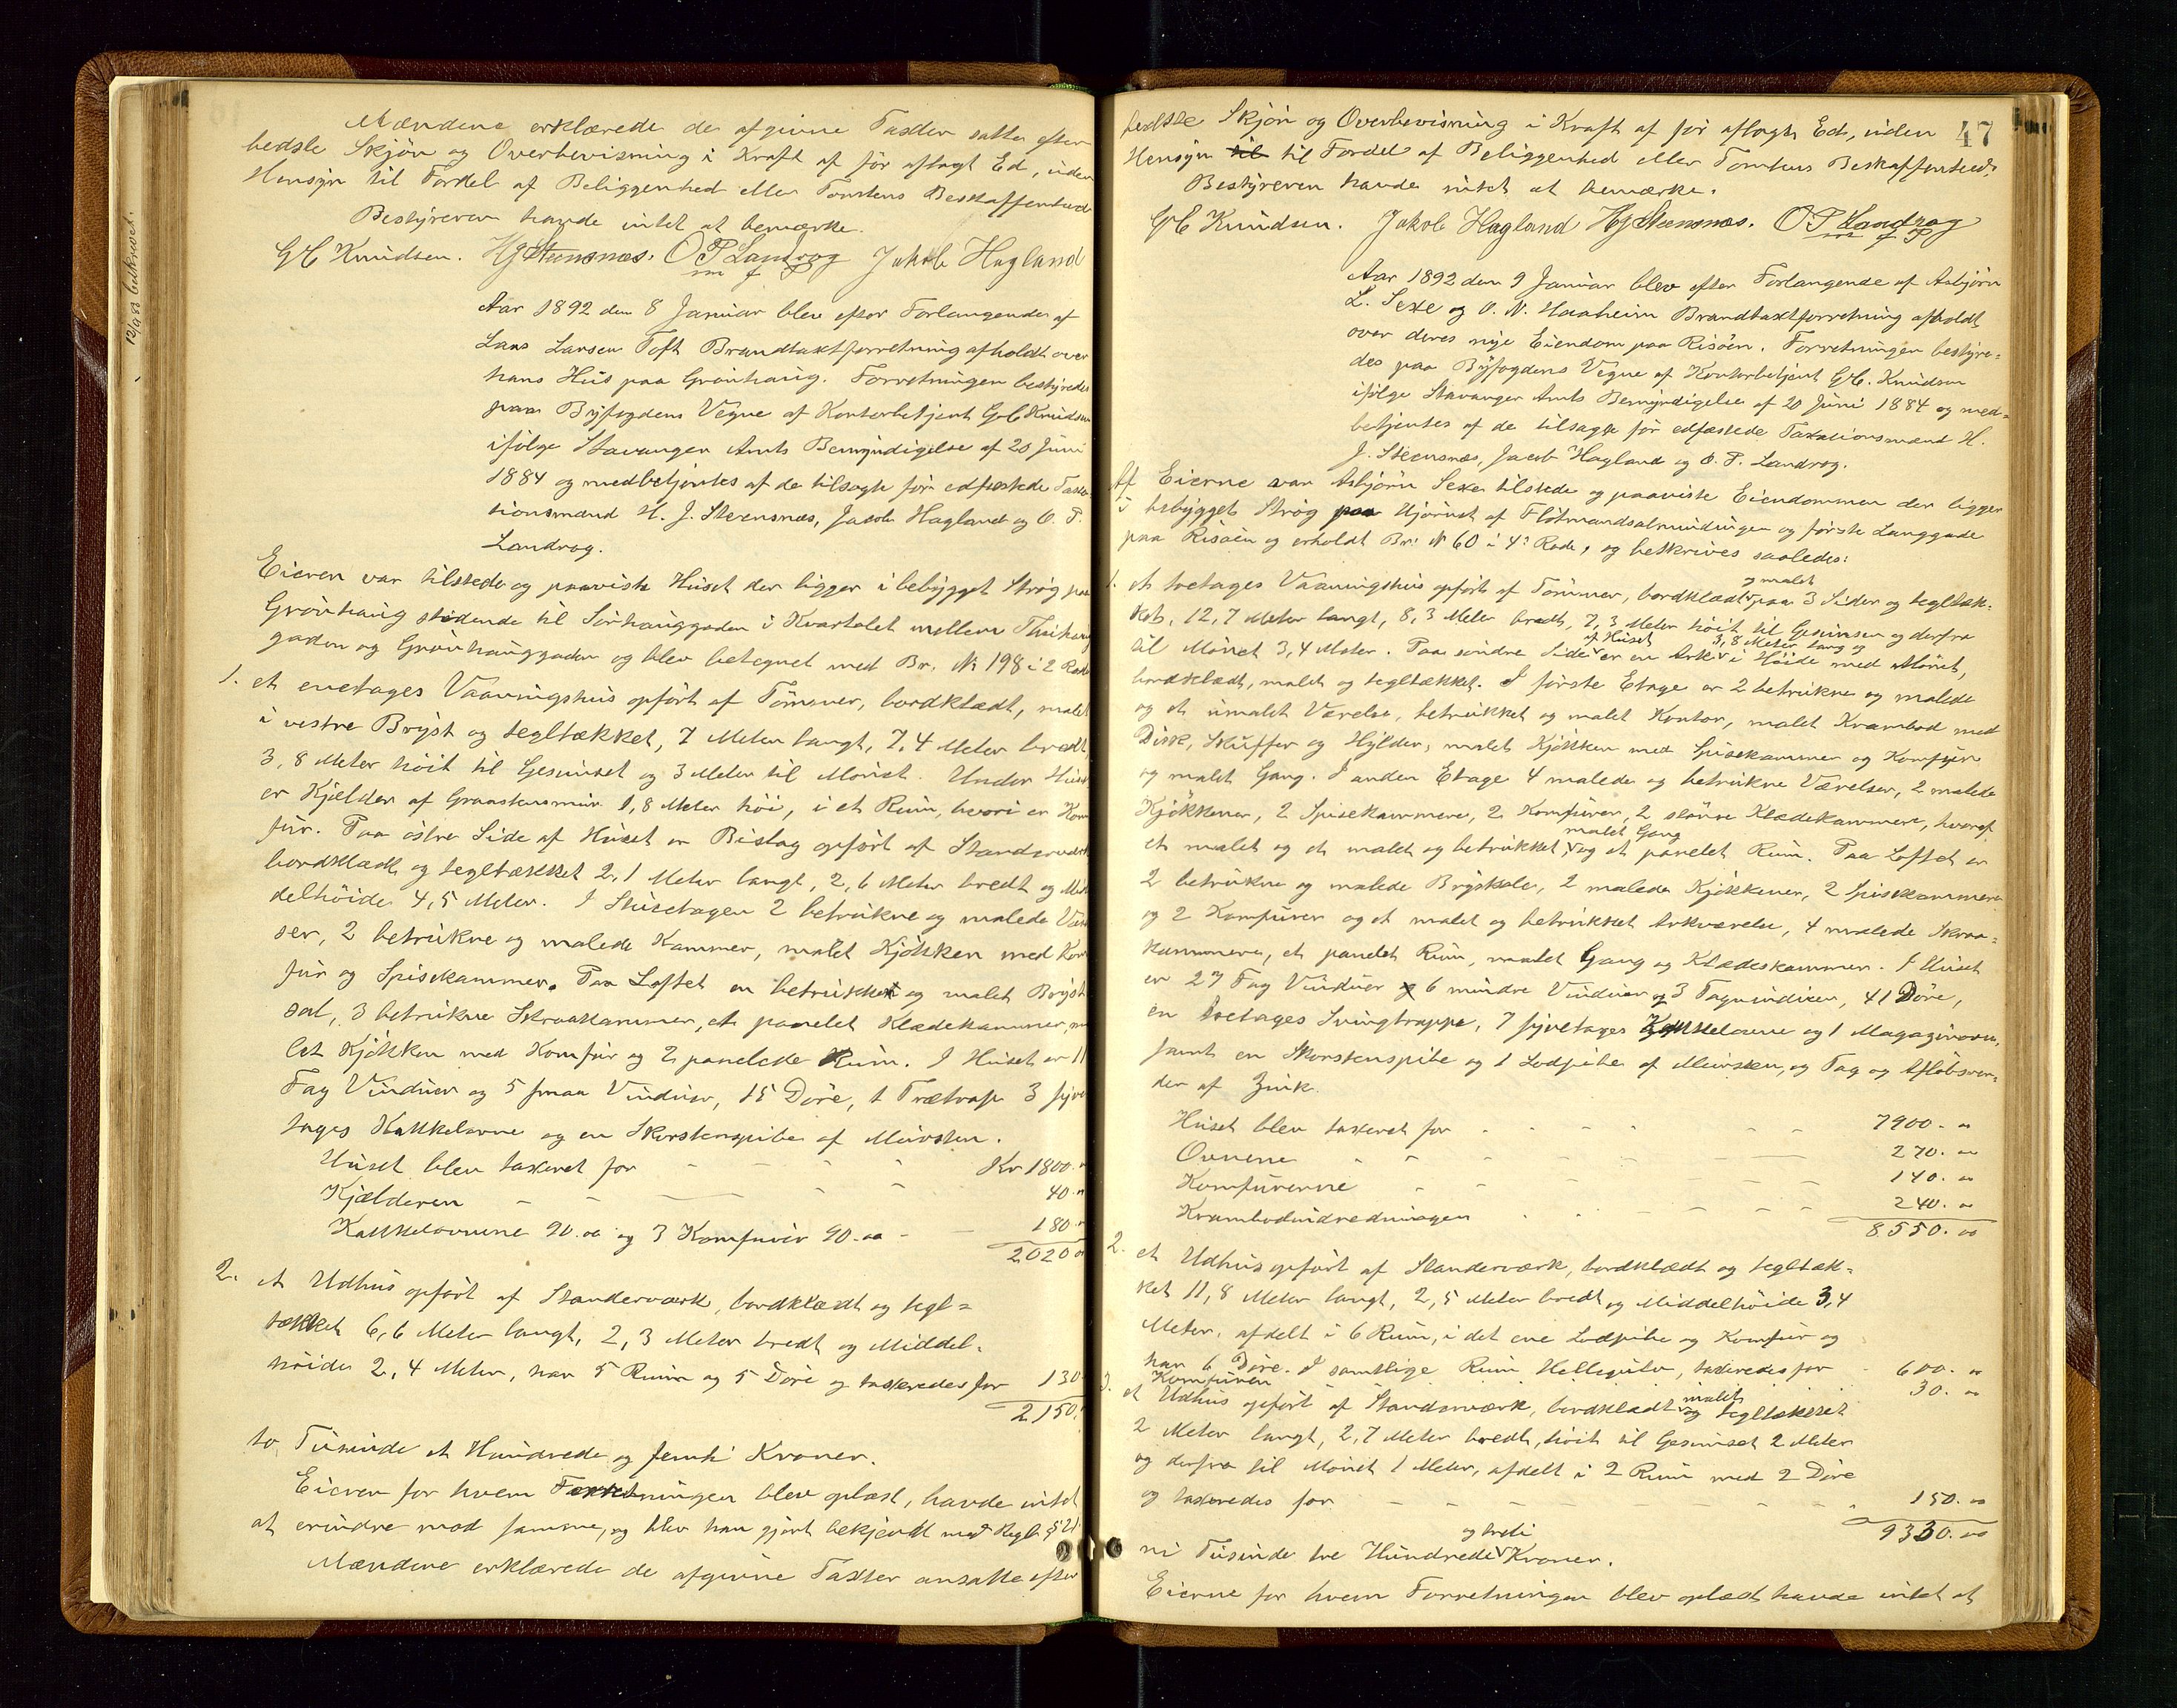 12/9 88 bekrivet.
Mændene erklærede de afgivne Taxter satte efter
bedste Skjøn og Overbevisning i Kraft af før aflagt Ed, uden
Hensyn til Fordel af Beliggenhed eller Tomtens Beskaffenhed
Bestyreren havde intet at bemærke.
G C Knudsen. H J Steensnæs. O P Landrog Jakob Hagland
m f P
Aar 1892 den 8 Januar blev efter Forlangende af
Lars Larsen Toft Brandtaxtforretning afholdt over
hans Hus paa Grønhaug. Forretningen bestyredes
paa Byfogdens Vegne af Kontorbetjent G C Knudsen
ifølge Stavanger Amts Bemyndigelse af 20 Juni
1884 og medbetjentes af de tilsagte før edfæstede Taxa-
tionsmænd H. J. Steensnæs, Jacob Hagland og O. P.
Landrog.
Eieren var tilstede og paaviste Huset der ligger i bebygget Strøg paa
Grønhaug stødende til Sørhauggaden i Kvartalet mellem
gaden og Grønhauggaden og blev betegnet med Br. № 198 i 2 Rode
1. et enetages Vaaningshus opført af Tømmer, bordklædt, malet
i vestre Bryst og tegltækket, 7 Meter langt, 7,4 Meter bredt,
3,8 Meter høit til Gesimset og 3 Meter til Mønet. Under Huset
er Kjelder af Graastensmur 1,8 Meter høi, i et Rum, hvori er Kom-
fur. Paa østre Side af Huset er Bislag opført af Standerværk
bordklædt og tegltækket 2,1 Meter langt, 2,6 Meter bredt og Mid-
delhøide 4,5 Meter. I Stuetagen 2 betrukne og malede Værel-
ser, 2 betrukne og malede Kammer, malet Kjøkken med Kom-
fur og Spisekammer. Paa Loftet en betrukket og malet Bryst-
sal, 3 betrukne Skraakammer, et panelet Klædekammer, ma-
let Kjøkken med Komfur og 2 panelede Rum. I Huset er 11
Fag Vinduer og 5 smaa Vinduer, 15 Døre, 1 Trætrap 3 fyr-
tages Kakkelovne og en Skorstenspibe af Mursten.
Huset blev taxeret for - - - - Kr 1800.
Kjælderen - - - - 40.
Kakkelovnene 90.00 og 3 Komfurer 90.00 - - 180.
2020 00
2. et Udhus opført af Standerværk, bordklædt og tegl=
tækket 6,6 Meter langt, 2,3 Meter bredt og Middel-
høide 2,4 Meter, har 5 Rum og 5 Døre og taxeredes for 130
2150.
to Tusinde et Hundrede og femti Kroner.
Eieren for hvem Forretningen blev oplæst, havde intet
at erindre mod samme, og blev han gjort bekjendt med Regl. § 21.
Mændene erklærede de afgivne Taxter ansatte efter
47
bedste Skjøn og Overbevisning i Kraft af før aflagte Ed, uden
Hensyn til til Fordel af Beliggenhed eller Tomtens Beskaffenhed.
Bestyreren havde intet at bemærke.
G C Knudsen. Jakob Hagland H J Steensnæs. O P Landrog
m f P
Aar 1892 den 9 Januar blev efter Forlangende af Asbjørn
L. Sexe og O. N. Haaheim Brandtaxtforretning afholdt
over deres nye Eiendom paa Risøen. Forretningen bestyre=
des paa Byfogdens Vegne af Kontorbetjent G C. Knudsen
ifølge Stavanger Amts Bemyndigelse af 20 Juni 1884 og med-
betjentes af de tilsagte før edfæstede Taxationsmænd H.
J. Steensnæs, Jacob Hagland og O. P. Landrog.
Af Eierne var Asbjørn Sexe tilstede og paaviste Eiendommen der ligger
i bebygget Strøg paa Hjørnet af Flotmandsalmindingen og første Langgade
paa Risøen og erholdt Br. № 60 i 4de Rode, og beskrives saaledes:
1. et toetages Vaaningshus opført af Tømmer, bordklædt og malet paa 3 Sider og tegltæk-
ket, 12,7 Meter langt, 8,3 Meter bredt, 7,3 Meter høit til Gesimsen og derfra
til Mønet 3,4 Meter. Paa søndre Side af Huset er en Ark 3,8 Meter lang og i Høide med Mønet,
bordklædt, malet og tegltækket. I første Etage er 2 betrukne og malede
og et umalet Værelse, betrukket og malet Kontor, malet Krambod med
Disk, Skuffer og Hylder, malet Kjøkken med Spisekammer og Komfur
og malet Gang. I anden Etage 4 malede og betrukne Værelser, 2 malede
Kjøkkener, 2 Spisekammere, 2 Komfurer, 2 større Klædekammere, hvoraf
et malet og et malet og betrukket, malet Gang og et panelet Rum. Paa Loftet er
2 betrukne og malede Brystsale, 2 malede Kjøkkener, 2 Spisekammere
og 2 Komfurer og et malet og betrukket Arkværelse, 4 malede Skraa=
kammere, et panelet Rum, malet Gang og Klædeskammer. I Huset
er 27 Fag Vinduer og 6 mindre Vinduer og 3 Tagvinduer, 41 Døre,
en toetages Svingtrappe, 7 fyretages Kakkelovne og 1 Magazinovn,
samt en Skorstenspibe og 1 Lodpibe af Mursten, og Tag og Afløbsren-
der af Zink.
Huset blev taxeret for - - - - 7900. 00
Ovnene - - - - 270. 00
Komfurerne - - - - 140. 00
Krambodindredningen - - - - 240. 00
8550. 00
2. et Udhus opført af Standerværk, bordklædt og tegltæk=
ket 11,8 Meter langt, 2,5 Meter bredt og Middelhøide 3,4
Meter, afdelt i 6 Rum, i det ene Lodpibe og Komfur og
har 6 Døre. I samtlige Rum Hellegulv, taxeredes for - 600. 00
Komfuren 30. 00
3. et Udhus opført af Standerværk, bordklædt malet og tegltækket
2 Meter langt, 2,7 Meter bredt, høit til Gesimset 2 Meter
og derfra til Mønet 1 Meter, afdelt i 2 Rum med 2 Døre
og taxeredes for - - - - 150. 00
9330. 00
ni Tusinde tre Hundrede og tredi Kroner.
Eierne for hvem Forretningen blev oplæst havde intet at